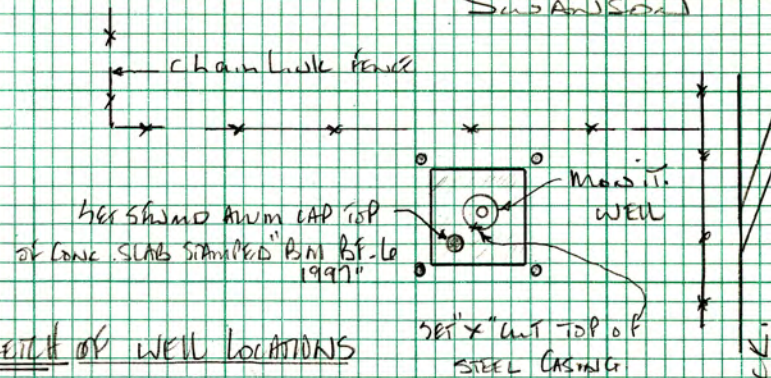 Chain Link FENCE
MONIT.
WELL
SET ALUM CAP TOP
OF CONC. SLAB STAMPED "BM BF-6
1997"
SET "X" CUT TOP OF
STEEL CASING
OF WELL LOCATIONS